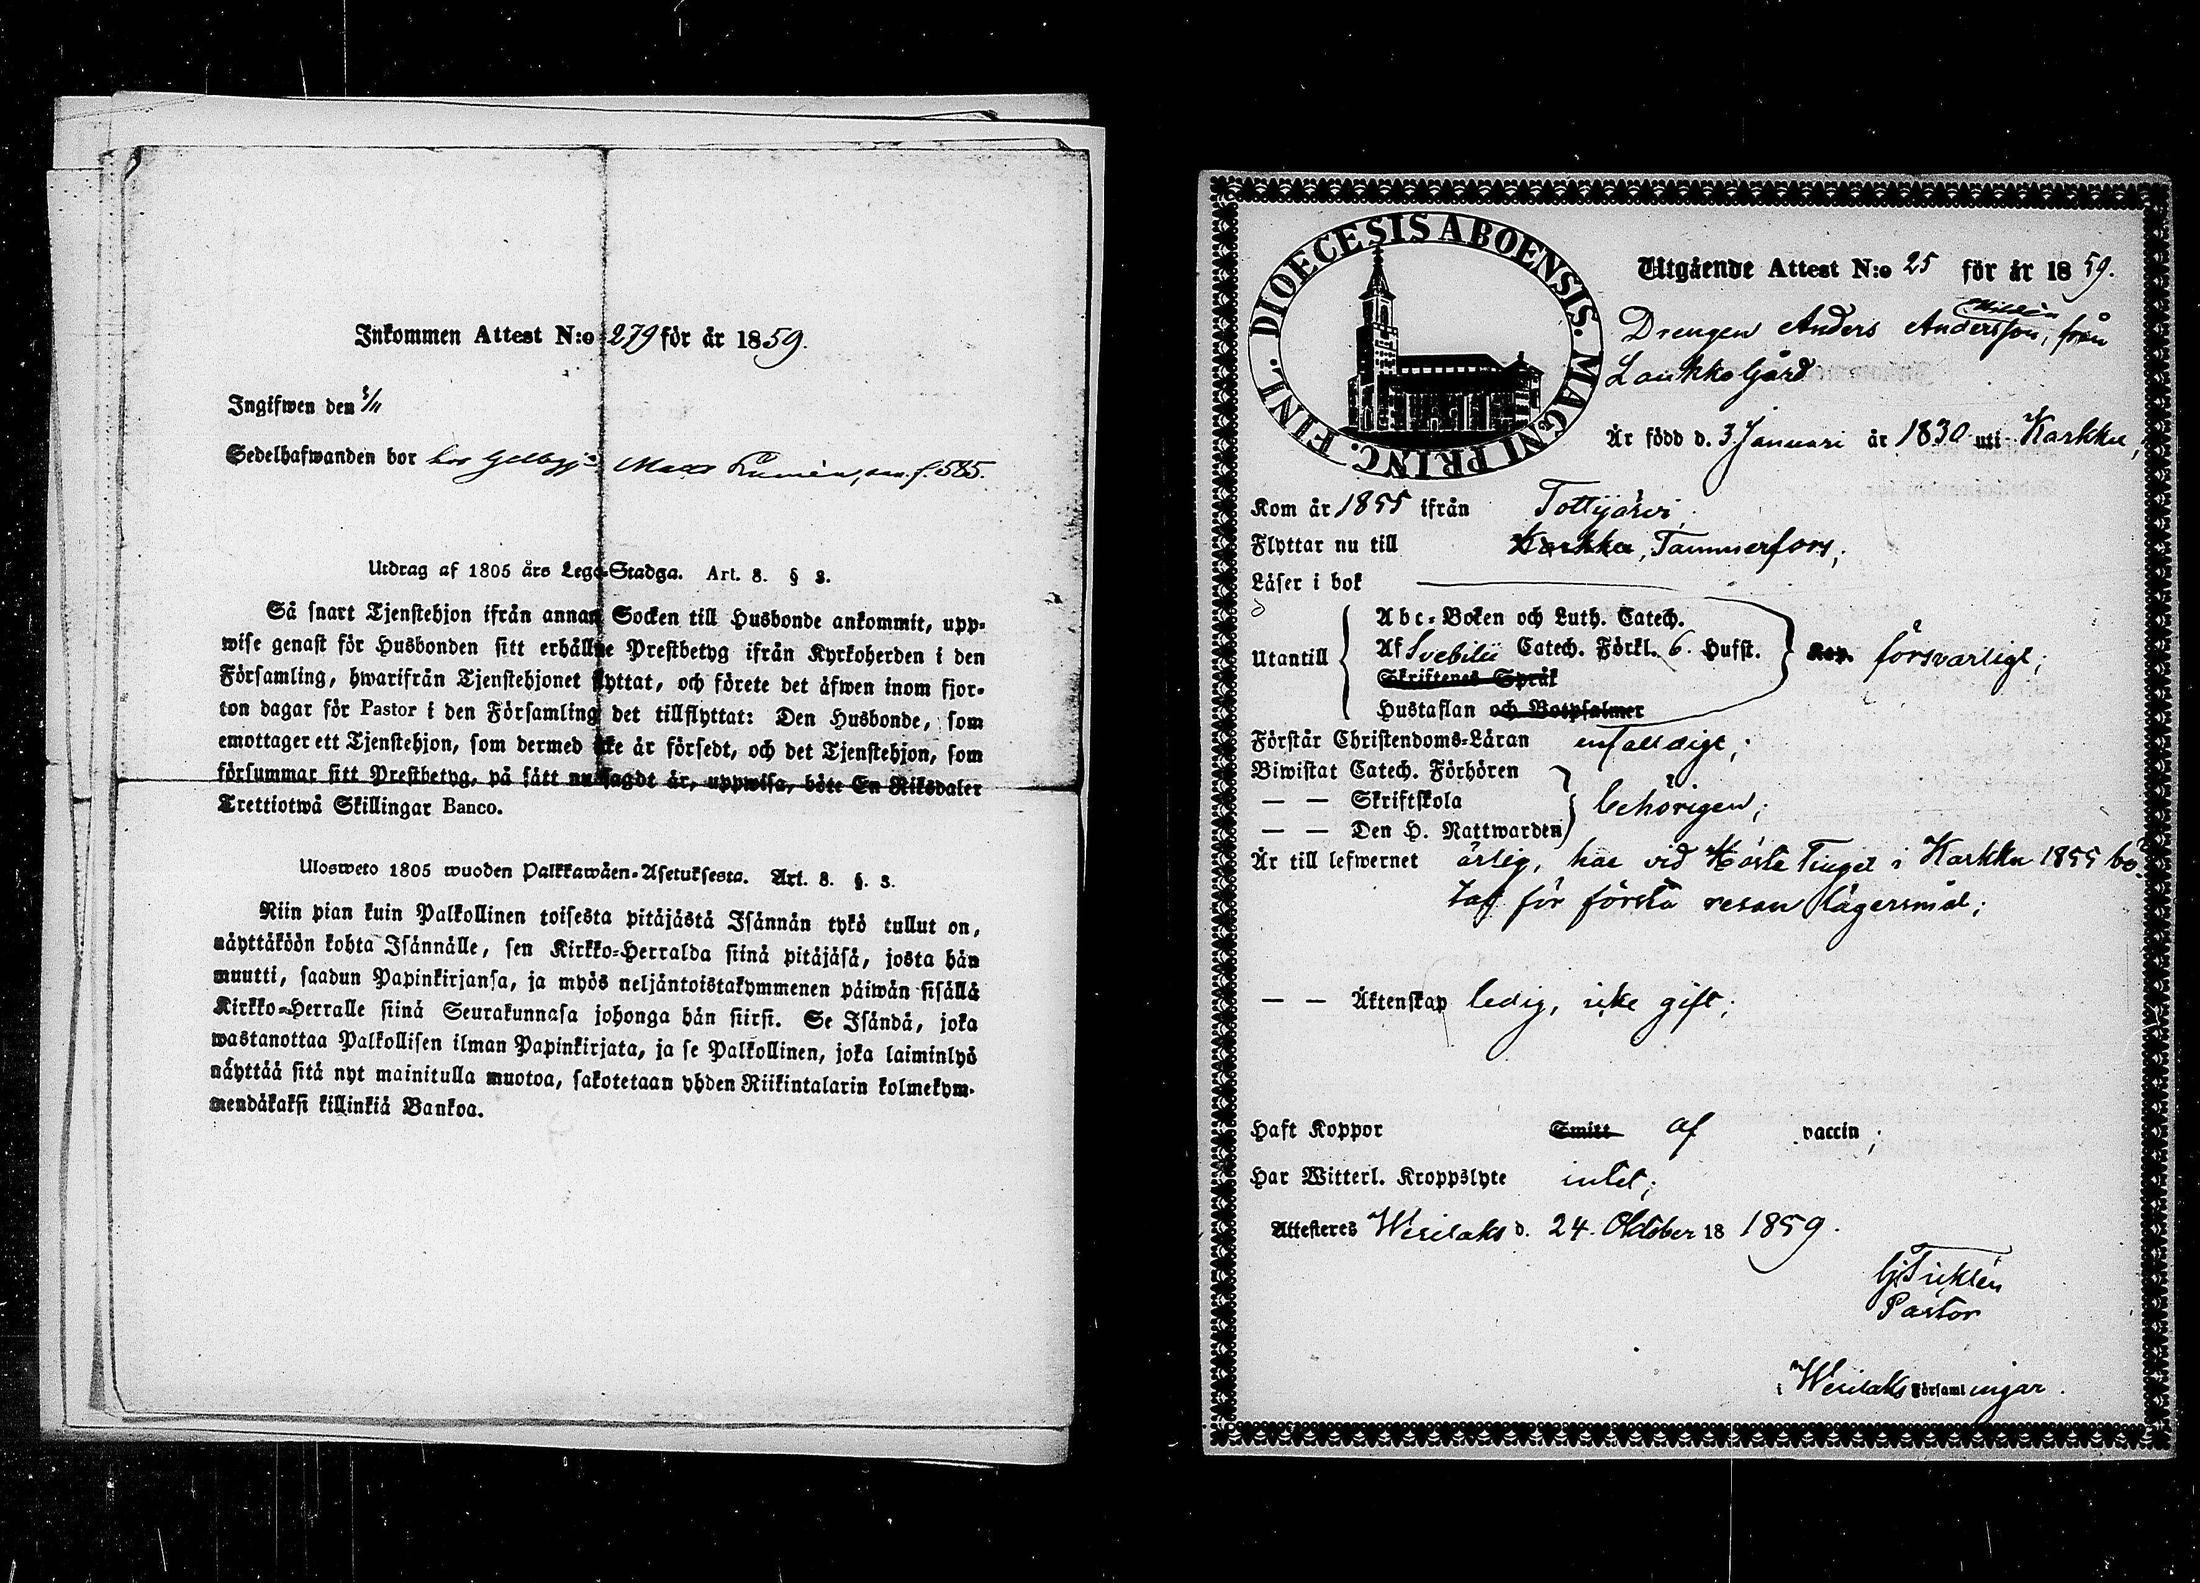 Inkommen Attest N:o 279 för år 1859.
Ingifwen den 5/11
Sedelhafwanden bor hos Matts f. 585.
Utdrag af 1805 års Lego-Stadga. Art. 8. § 3.
Så snart Tjenstehjon ifrån annan Socken till Husbonde ankommit, upp-
wise genast för Husbonden sitt erhållne Prestbetyg ifrån Kyrkoherden i den
Församling, hwarifrån Tjenstehjonet flyttat, och förete det äfwen inom fjor-
ton dagar för Pastor i den Församling det tillflyttat: Den Husbonde, som
emottager ett Tjenstehjon, som dermed icke är försedt, och det Tjenstehjon, som
försummar sitt Prestbetyg, på sätt nu sagdt är, uppwisa, böte En Riksdaler
Trettiotwå Skillingar Banco.
Ulosweto 1805 wuoden Palkkawäen-Asetuksesta. Art. 8. §. 3.
Niin pian kuin Palkollinen toisesta pitäjästä Isännän tykö tullut on,
näyttäköön kohta Isännälle, sen Kirkko-Herralda siinä pitäjäsä, josta hän
muutti, saadun Papinkirjansa, ja myös neljäntoistakymmenen päiwän sisällä
Kirkko-Herralle siinä Seurakunnasa johonga hän siirsi. Se Isändä, joka
wastanottaa Palkollisen ilman Papinkirjata, ja se Palkollinen, joka laiminlyö
näyttää sitä nyt mainitulla muotoa, sakotetaan yhden Riikintalarin kolmekym-
mendäkaksi killinkiä Bankoa.
DIOECESIS ABOENSIS. MAGNI PRINC. FINL.
Utgående Attest N:o 25 för år 1859.
Drengen Anders Andersson, från
Laukko Gård
Är född d. 3 Januari år 1830 uti Karkku,
Kom år 1855 ifrån Tottijärvi,
Flyttar nu till Karkku, Tammerfors;
Läser i bok
Utantill
Abc-Boken och Luth. Catech.
Af Svebilii Catech. Förkl. 6. Hufst.
Skriftenes Språk
Hustaflan och Botpsalmer
Kap. försvarligt;
Förstår Christendoms-Läran enfaldigt;
Biwistat Catech. Förhören
— — Skriftskola
— — Den H. Nattwarden
behörigen;
Är till lefwernet ärlig, har vid Höste Tinget i Karkku 1855 bö-
taf för första resan lägersmål;
— — Äktenskap ledig, icke gift;
Haft Koppor Smitt af vaccin;
Har Witterl. Kroppslyte intet;
Attesteres Wesilaks d. 24. Oktober 18 1859.
Pastor
i Wesilaks Församlingar.